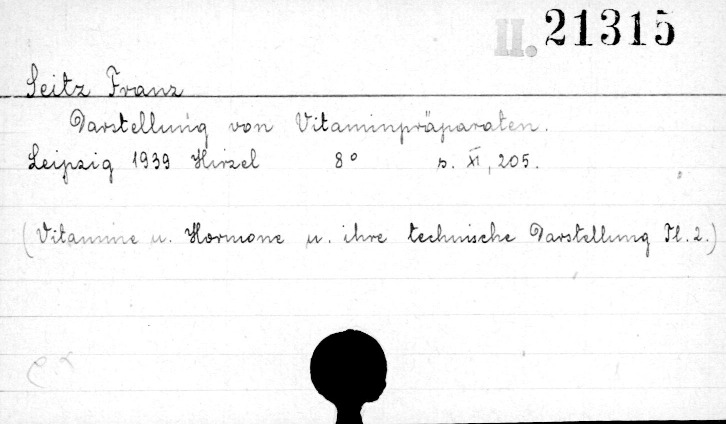 II. 21315
Seitz Franz
Darstellung von Vitaminpräparaten.
Leipzig 1939 Hirzel 8° s. XI, 205.
(Vitamine u. Hormone u. ihre technische Darstellung Tl. 2.)